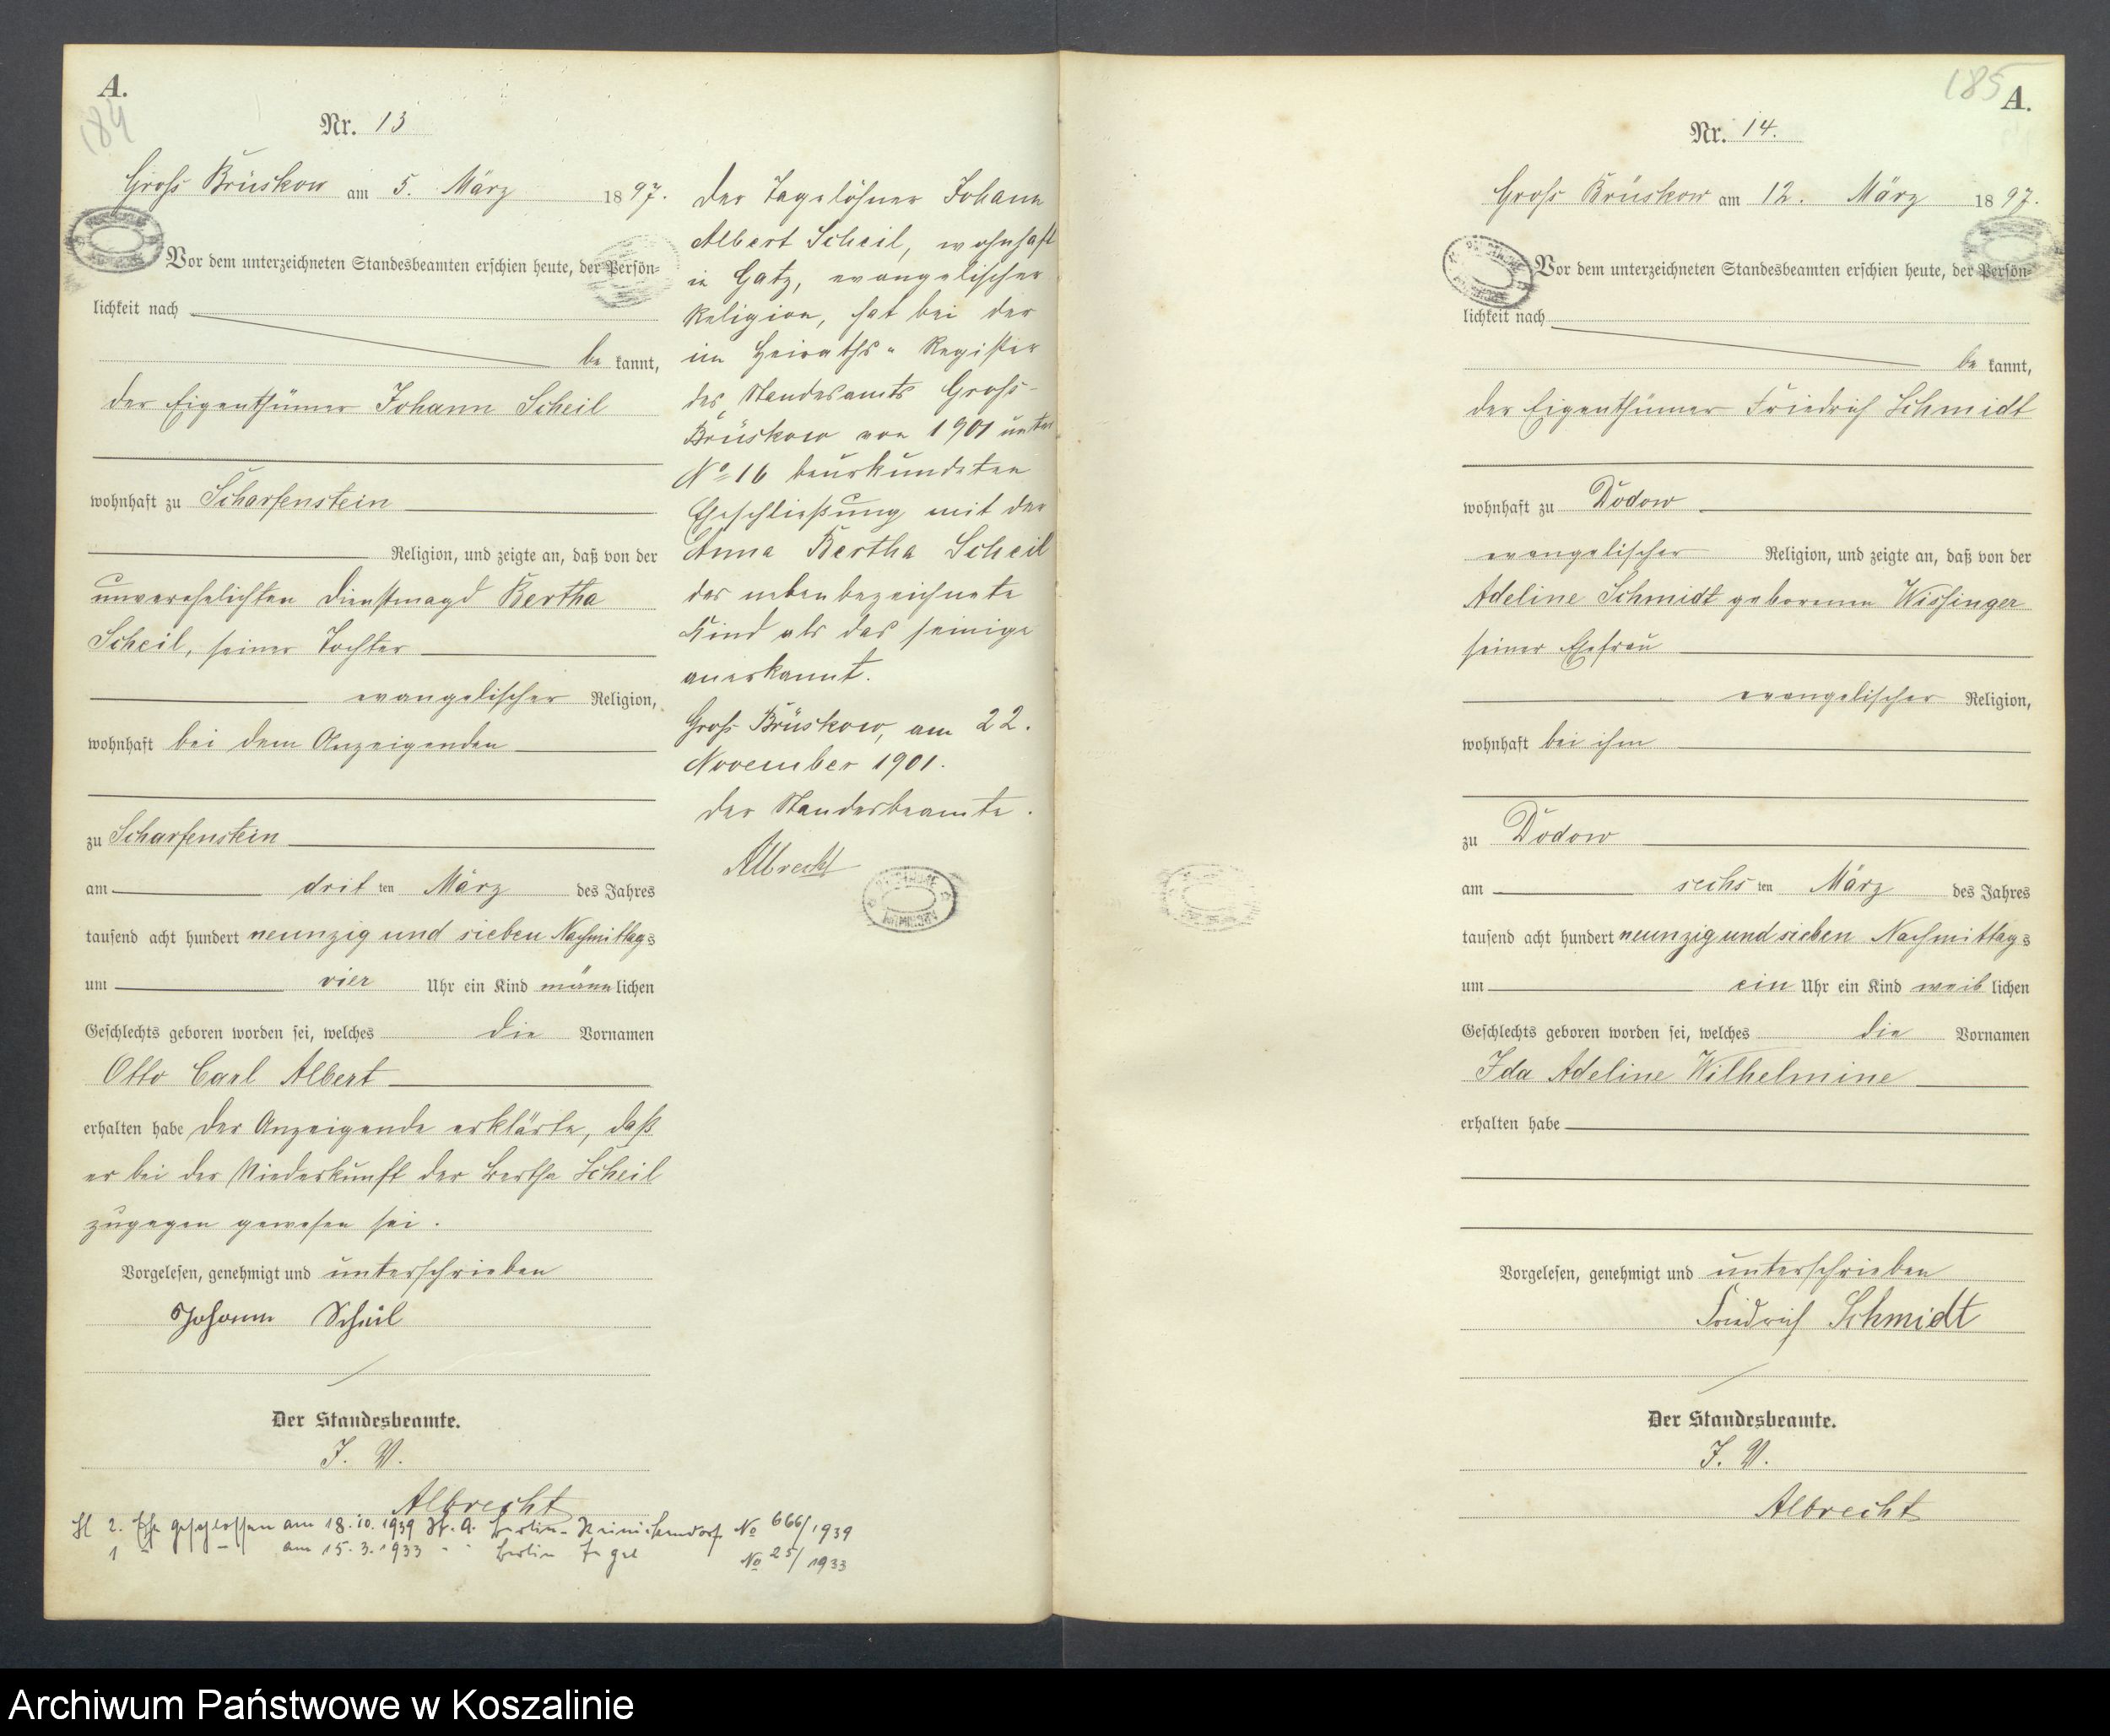 A.
184
Nr. 13
Groß Brüskow am 5. März 1897.
Vor dem unterzeichneten Standesbeamten erschien heute, der Persön-
lichkeit nach
be kannt,
der Eigenthümer Johann Scheil
wohnhaft zu Scharfenstein
Religion, und zeigte an, daß von der
unverehelichten Dienstmagd Bertha
Scheil, seiner Tochter
evangelischer Religion,
wohnhaft bei dem Anzeigenden
zu Scharfenstein
am drit ten März des Jahres
tausend acht hundert neunzig und sieben Nachmittags
um vier Uhr ein Kind männlichen
Geschlechts geboren worden sei, welches die Vornamen
Otto Carl Albert
erhalten habe Der Anzeigende erklärte, daß
er bei der Niederkunft der Bertha Scheil
zugegen gewesen sei.
Vorgelesen, genehmigt und unterschrieben
Johann Scheil
Der Standesbeamte.
J. V.
Albrecht
2. Ehe geschlossen am 18.10.1939 St. A. Berlin-Reinickendorf No 666/1939
1 " — am 15.3.1933 " " Berlin Tegel No 25/1933
Der Tagelöhner Johann
Albert Scheil, wohnhaft
in Gatz, evangelischer
Religion, hat bei der
im Heiraths-Register
des Standesamts Groß-
Brüskow von 1901 unter
No 16 beurkundeten
Eheschließung mit der
Anna Bertha Scheil
das nebenbezeichnete
Kind als das seinige
anerkannt.
Groß Brüskow, am 22.
November 1901.
Der Standesbeamte.
Albrecht
185
A.
Nr. 14.
Groß Brüskow am 12. März 1897.
Vor dem unterzeichneten Standesbeamten erschien heute, der Persön-
lichkeit nach
be kannt,
der Eigenthümer Friedrich Schmidt
wohnhaft zu Dodow
evangelischer Religion, und zeigte an, daß von der
Adeline Schmidt geborenen Wissinger
seiner Ehefrau
evangelischer Religion,
wohnhaft bei ihm
zu Dodow
am sechs ten März des Jahres
tausend acht hundert neunzig und sieben Nachmittags
um ein Uhr ein Kind weib lichen
Geschlechts geboren worden sei, welches die Vornamen
Ida Adeline Wilhelmine
erhalten habe
Vorgelesen, genehmigt und unterschrieben
Friedrich Schmidt
Der Standesbeamte.
J. V.
Albrecht
Archiwum Państwowe w Koszalinie